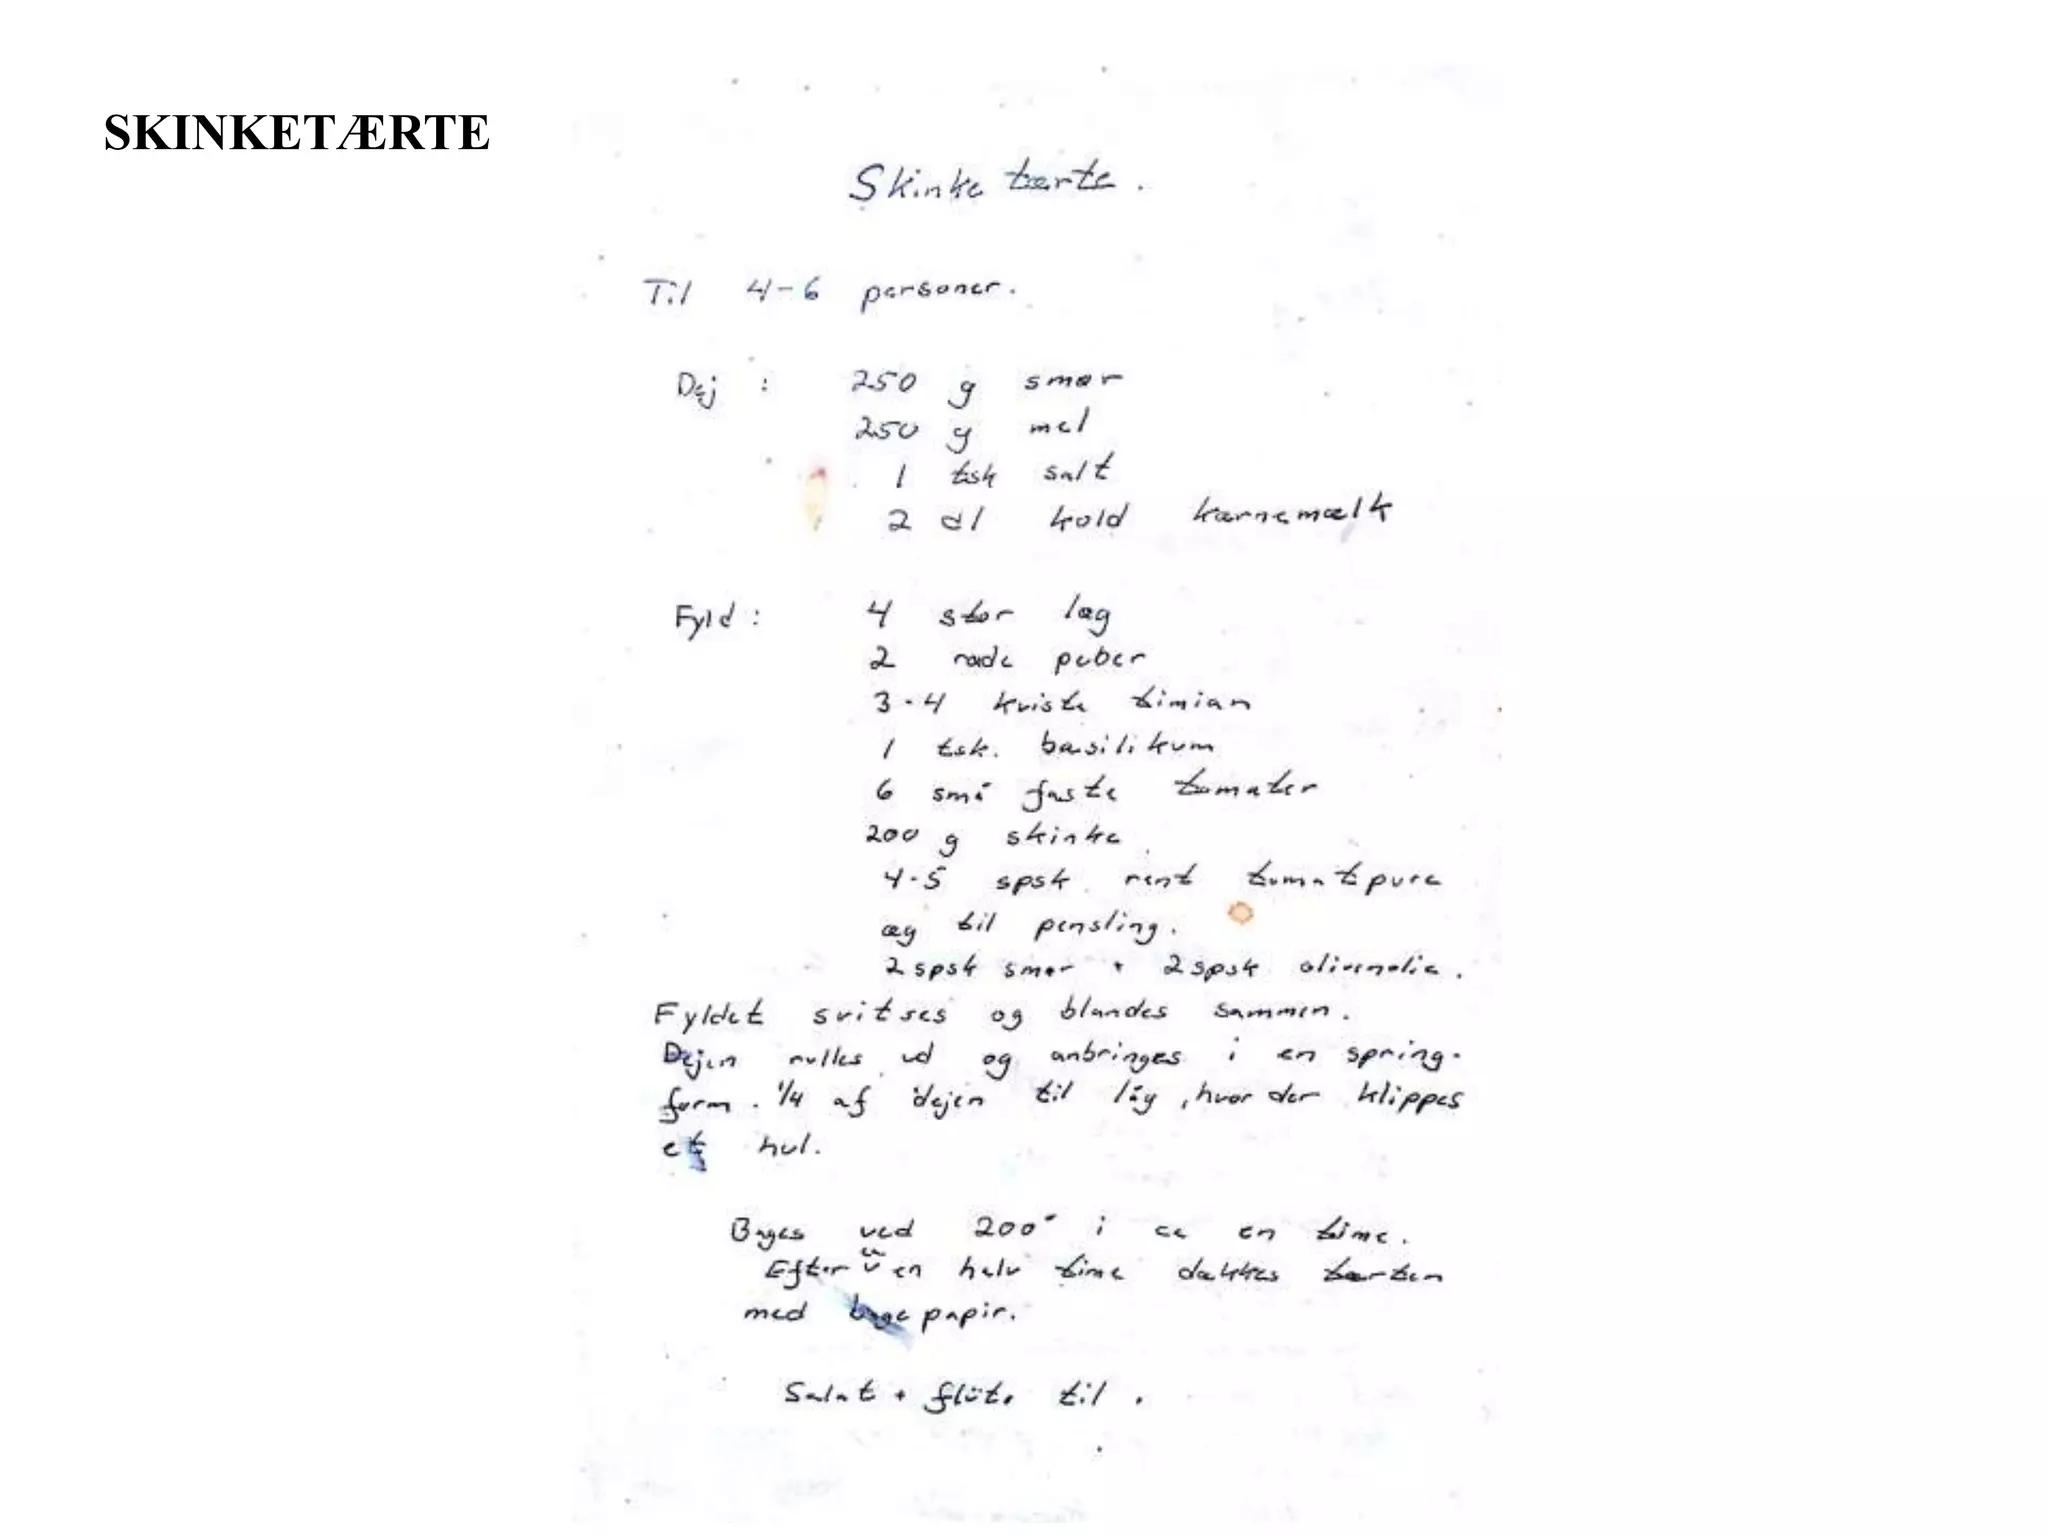 SKINKETÆRTE
Skinke tærte.
Til 4-6 personer.
Dej : 250 g smør
250 g mel
1 tsk salt
2 dl kold kærnemælk
Fyld : 4 stor løg
2 røde peber
3-4 kviste timian
1 tsk. basilikum
6 små faste tomater
200 g skinke
4-5 spsk rent tomatpure
æg til pensling.
2 spsk smør + 2 spsk olivenolie.
Fyldet svitses og blandes sammen.
Dejen rulles ud og anbringes i en spring-
form. 1/4 af dejen til låg, hvor der klippes
et hul.
Bages ved 200° i ca en time.
Efter ca en halv time dækkes tærten
med bagepapir.
Salat + flûte til.